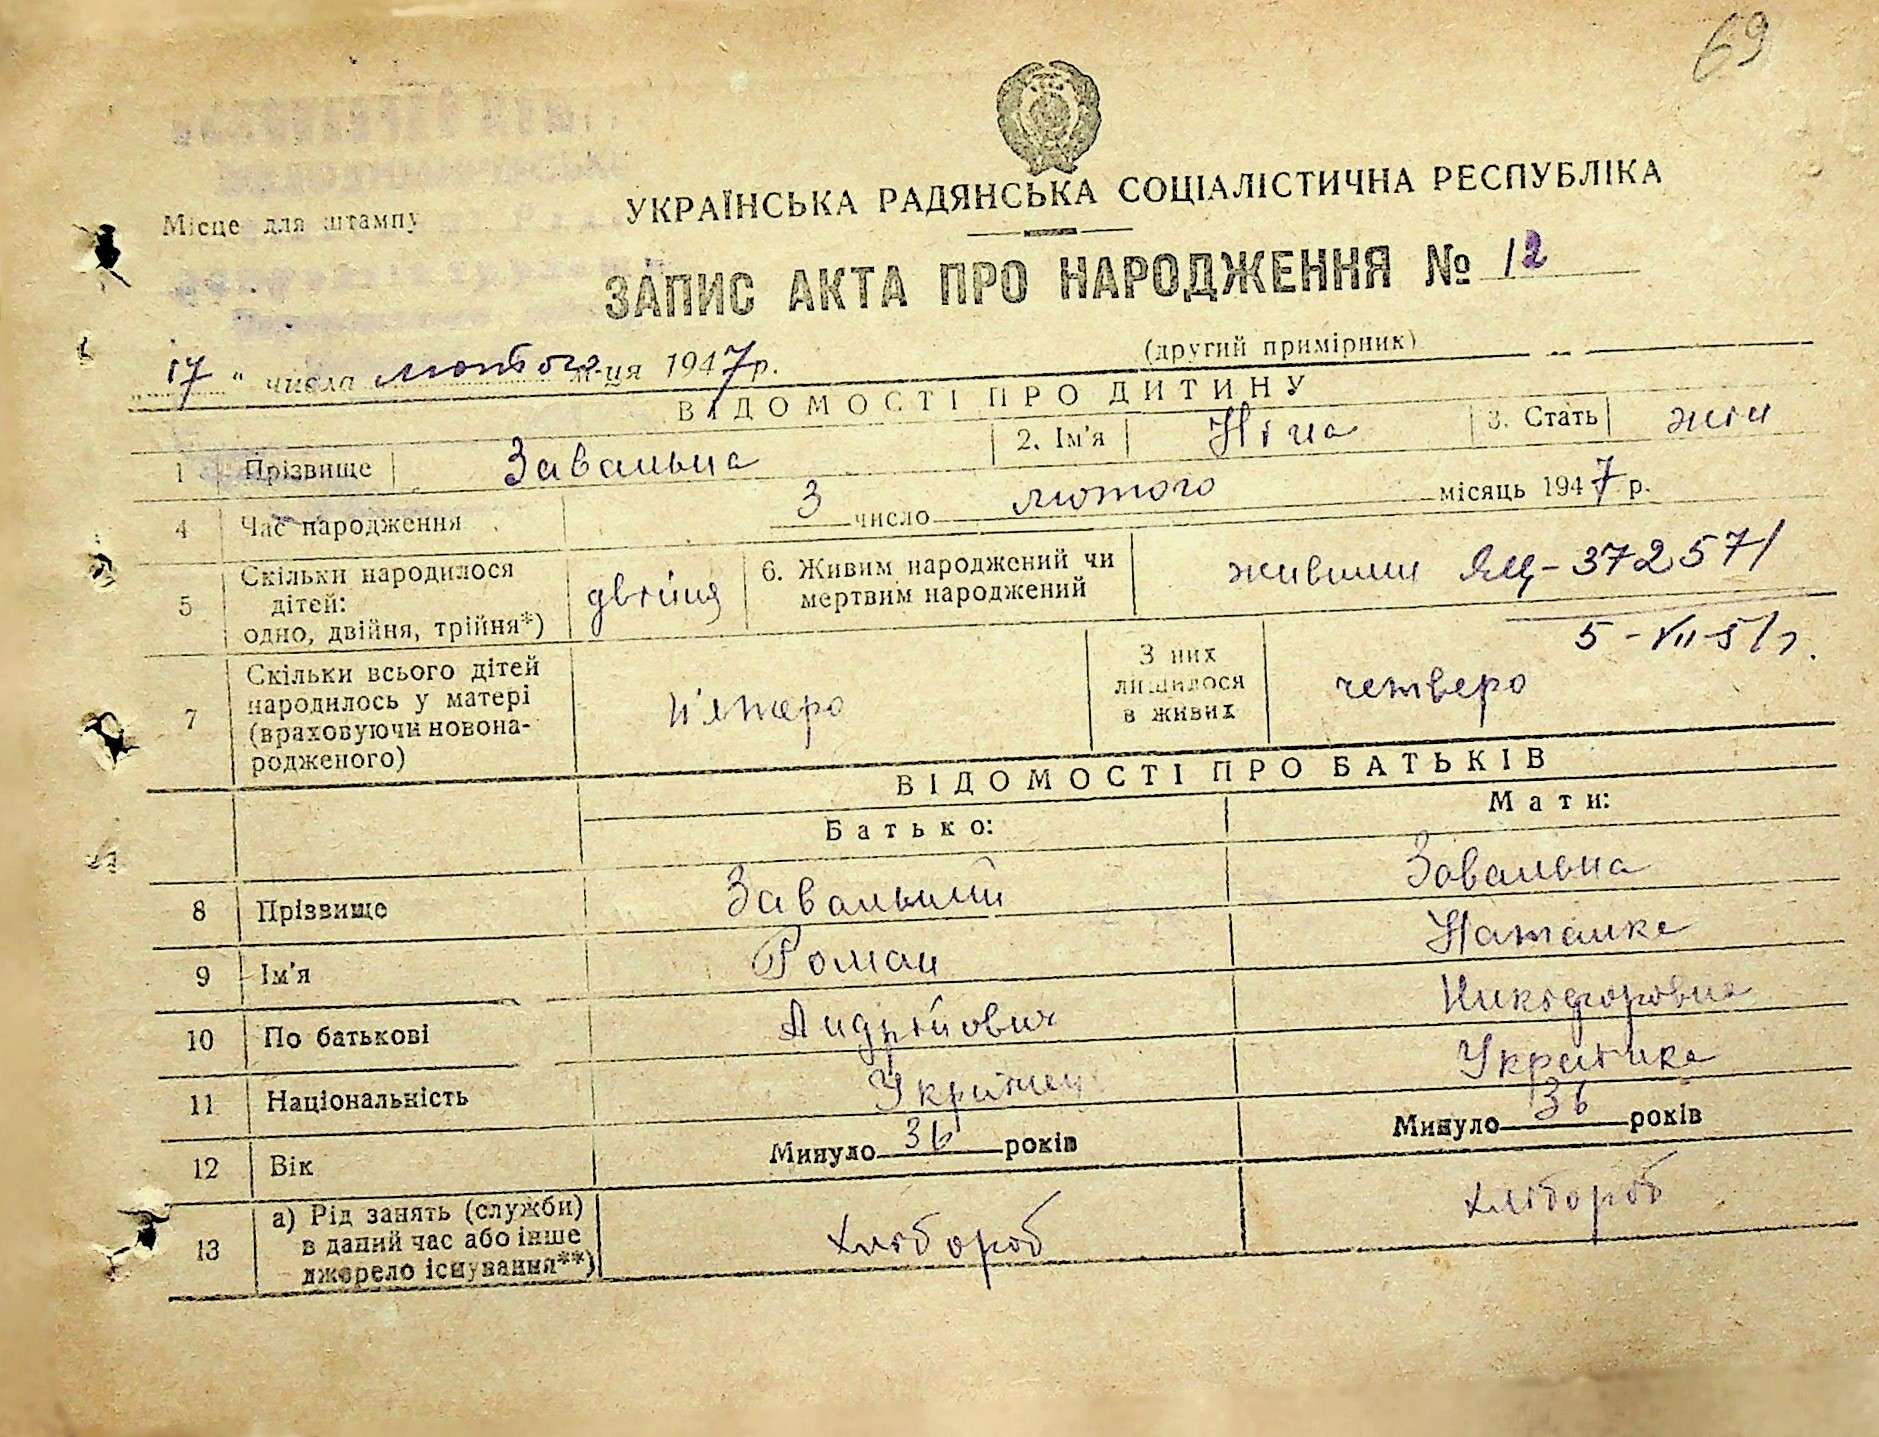 69
УКРАЇНСЬКА РАДЯНСЬКА СОЦІАЛІСТИЧНА РЕСПУБЛІКА
Місце для штампу
ЗАПИС АКТА ПРО НАРОДЖЕННЯ № 12
(другий примірник)
„17“ числа лютого м-ця 1947 р.
ВІДОМОСТІ ПРО ДИТИНУ
1 Прізвище Завальна 2. Ім'я Ніна 3. Стать жін
4 Час народження 3 число лютого місяць 1947 р.
5 Скільки народилося дітей: одно, двійня, трійня*) двійня 6. Живим народжений чи мертвим народжений живими ЯЩ-372571
5-VII-51 р.
7 Скільки всього дітей народилось у матері (враховуючи новонародженого) п'ятеро З них лишилося в живих четверо
ВІДОМОСТІ ПРО БАТЬКІВ
Батько: Мати:
8 Прізвище Завальний Завальна
9 Ім'я Роман Наталка
10 По батькові Андрійович Никифоровна
11 Національність Українец Українка
12 Вік Минуло 36 років Минуло 36 років
13 а) Рід занять (служби) в даний час або інше джерело існування**) хлібороб хлібороб